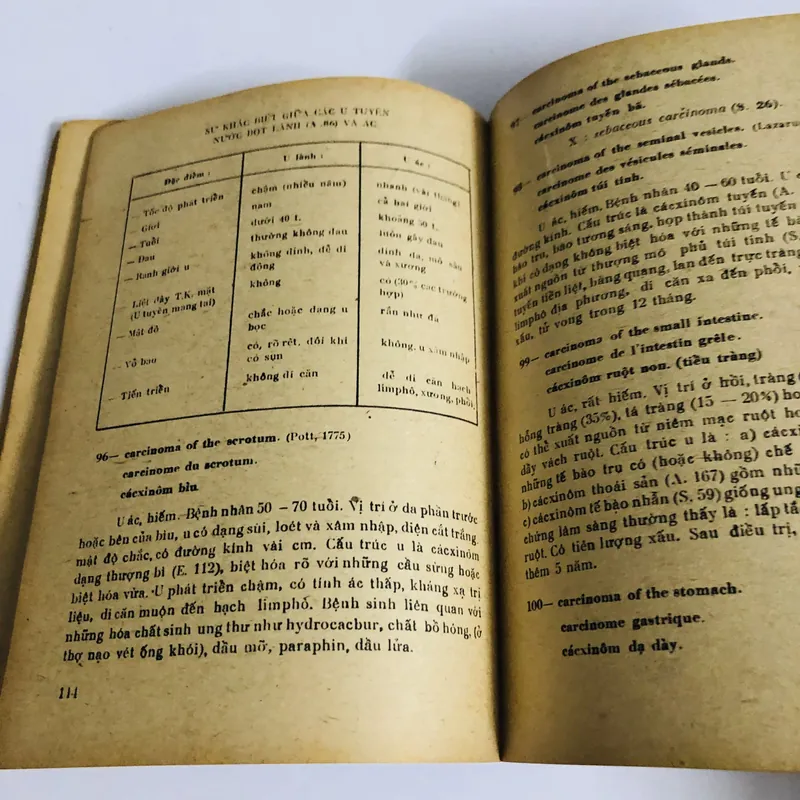 SỰ KHÁC BIỆT GIỮA CÁC U TUYẾN
NƯỚC BỌT LÀNH (A .86) VÀ ÁC
Đặc điểm :
U lành :
U ác :
— Tốc độ phát triển
chậm (nhiều năm)
nhanh (vài tháng)
— Giới
nam
cả hai giới
— Tuổi
dưới 40 t.
khoảng 50 t.
— Đau
thường không đau
luôn gây đau
— Ranh giới u
không dính, dễ di
động
dính da, mô sâu
và xương
— Liệt dây T.K. mặt
(U tuyến mang tai)
không
có (30% các trường
hợp)
— Mật độ
chắc hoặc dạng u
bọc
rắn như đá
— Vỏ bao
có, rõ rệt, đôi khi
có sụn
không, u xâm nhập
— Tiến triển
không di căn
dễ di căn hạch
limphô, xương, phổi.
96— carcinoma of the scrotum. (Pott, 1775)
carcinome du scrotum.
cácxinôm bìu.
U ác, hiếm. Bệnh nhân 50 — 70 tuổi. Vị trí ở da phần trước
hoặc bên của bìu, u có dạng sùi, loét và xâm nhập, diện cắt trắng,
mật độ chắc, có đường kính vài cm. Cấu trúc u là cácxinôm
dạng thượng bì (E. 112), biệt hóa rõ với những cầu sừng hoặc
biệt hóa vừa. U phát triển chậm, có tính ác thấp, kháng xạ trị
liệu, di căn muộn đến hạch limphô. Bệnh sinh liên quan với
những hóa chất sinh ung thư như hydrocacbur, chất bồ hóng, (ở
thợ nạo vét ống khói), dầu mỡ, paraphin, dầu lửa.
114
97— carcinoma of the sebaceous glands.
carcinome des glandes sébacées.
cácxinôm tuyến bã.
X : sebaceous carcinoma (S. 26).
98— carcinoma of the seminal vesicles. (Lazarus
carcinome des vésicules séminales.
cácxinôm túi tinh.
U ác, hiếm. Bệnh nhân 40 — 60 tuổi. U c
đường kính. Cấu trúc là cácxinôm tuyến (A.
bào trụ, bào tương sáng, họp thành túi tuyến
khi có dạng không biệt hóa với những tế bà
xuất nguồn từ thượng mô phủ túi tinh (S.
tuyến tiền liệt, bàng quang, lan đến trực tràng
limphô địa phương, di căn xa đến phổi,
sấu, tử vong trong 12 tháng.
99— carcinoma of the small intestine.
carcinome de l'intestin grêle.
cácxinôm ruột non. (tiểu tràng)
U ác, rất hiếm. Vị trí ở hồi, tràng (
hỗng tràng (35%), tá tràng (15 — 20%) ho
có thể xuất nguồn từ niêm mạc ruột ho
đầy vách ruột. Cấu trúc u là : a) cácx
những tế bào trụ có (hoặc không) chế
b) cácxinôm thoái sản (A. 167) gồm nhữ
c) cácxinôm tế bào nhẫn (S. 59) giống ung
chứng lâm sàng thường thấy là : lấp tắ
ruột. Có tiên lượng xấu. Sau điều trị,
thêm 5 năm.
100— carcinoma of the stomach.
carcinome gastrique.
cácxinôm dạ dày.